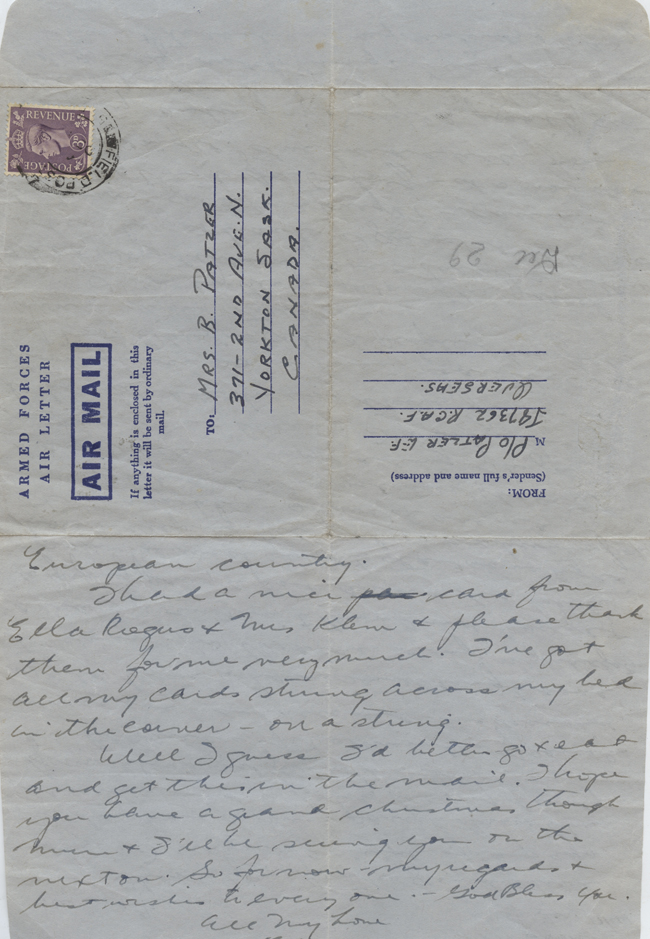 REVENUE
3D
POSTAGE
FIELD PO
ARMED FORCES
AIR LETTER
AIR MAIL
If anything is enclosed in this
letter it will be sent by ordinary
mail.
TO:
MRS. B. PATZER
371-2ND AVE. N.
YORKTON SASK.
CANADA.
Dec 29
FROM:
(Sender's full name and address)
M P/O PATZER E.F.
J91362 RCAF.
OVERSEAS.
European country.
I had a nice card from
Ella Rogers & Mrs Klem & please thank
them for me very much. I've got
all my cards strung across my bed
in the corner - on a string.
Well I guess I'd better go & eat
and get this in the mail. I hope
you have a grand christmas though
mum & I'll be seeing you on the
next on. So for now - my regards &
best wishes to every one. - God Bless You.
All My Love